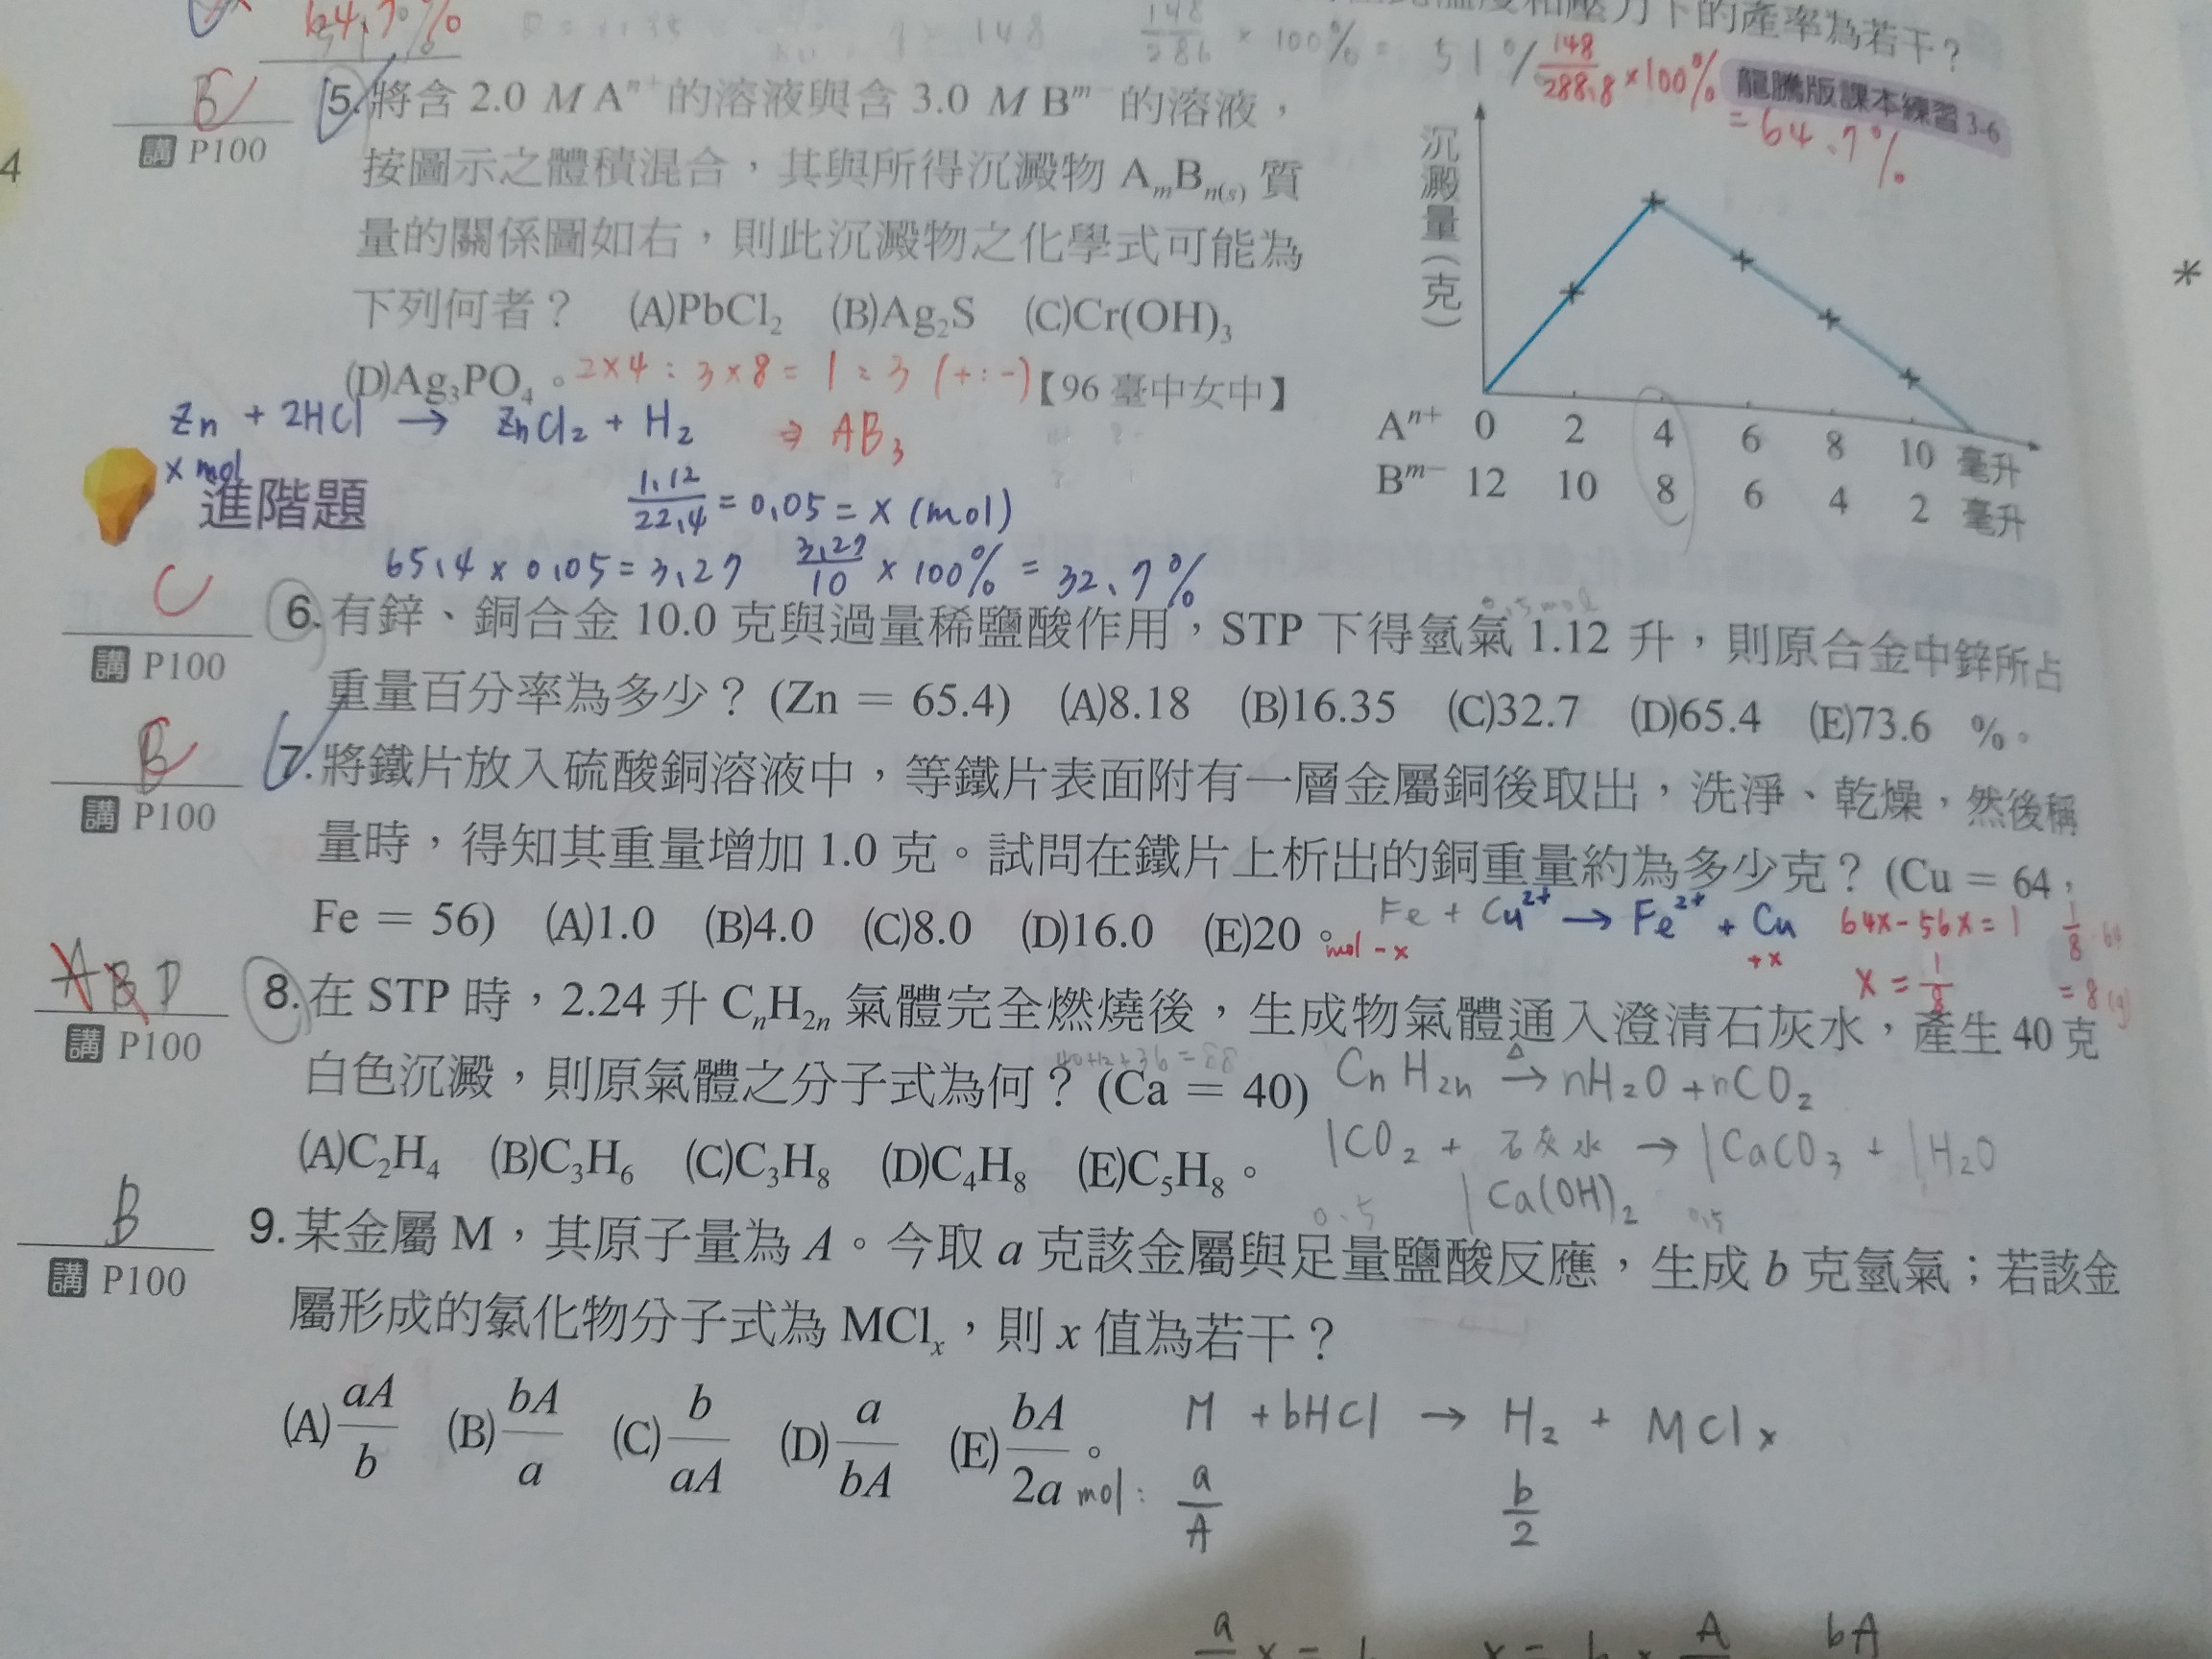 64.7%
148/286 × 100% = 51%
的產率為若干？
148/288.8 × 100%
= 64.7%
龍騰版課本練習 3-6
4
講 P100
5. 將含 2.0 M Aⁿ⁺ 的溶液與含 3.0 M Bᵐ⁻ 的溶液，
按圖示之體積混合，其與所得沉澱物 AₘBₙ₍ₛ₎ 質
量的關係圖如右，則此沉澱物之化學式可能為
下列何者？ (A)PbCl₂ (B)Ag₂S (C)Cr(OH)₃
(D)Ag₃PO₄。 【96 臺中女中】
2×4 : 3×8 = 1 : 3 (+:-)
⇒ AB₃
沉澱量(克)
Aⁿ⁺ 0 2 4 6 8 10 毫升
Bᵐ⁻ 12 10 8 6 4 2 毫升
*
Zn + 2HCl → ZnCl₂ + H₂
x mol
進階題
1.12/22.4 = 0.05 = x (mol)
65.4 × 0.05 = 3.27 3.27/10 × 100% = 32.7%
C
講 P100
6. 有鋅、銅合金 10.0 克與過量稀鹽酸作用，STP 下得氫氣 1.12 升，則原合金中鋅所占
重量百分率為多少？(Zn = 65.4) (A)8.18 (B)16.35 (C)32.7 (D)65.4 (E)73.6 %。
講 P100
7. 將鐵片放入硫酸銅溶液中，等鐵片表面附有一層金屬銅後取出，洗淨、乾燥，然後稱
量時，得知其重量增加 1.0 克。試問在鐵片上析出的銅重量約為多少克？(Cu = 64，
Fe = 56) (A)1.0 (B)4.0 (C)8.0 (D)16.0 (E)20。
Fe + Cu²⁺ → Fe²⁺ + Cu
mol -x +x
64x-56x=1
x = 1/8
1/8·64
= 8(g)
A B D
講 P100
8. 在 STP 時，2.24 升 CₙH₂ₙ 氣體完全燃燒後，生成物氣體通入澄清石灰水，產生 40 克
白色沉澱，則原氣體之分子式為何？(Ca = 40)
(A)C₂H₄ (B)C₃H₆ (C)C₃H₈ (D)C₄H₈ (E)C₅H₈。
40+12+36=88
CₙH₂ₙ △→ nH₂O + nCO₂
1CO₂ + 石灰水 → 1CaCO₃ + 1H₂O
1Ca(OH)₂
0.5 0.5
B
講 P100
9. 某金屬 M，其原子量為 A。今取 a 克該金屬與足量鹽酸反應，生成 b 克氫氣；若該金
屬形成的氯化物分子式為 MClₓ，則 x 值為若干？
(A) aA/b (B) bA/a (C) b/aA (D) a/bA (E) bA/2a。
M + bHCl → H₂ + MClₓ
mol: a/A b/2